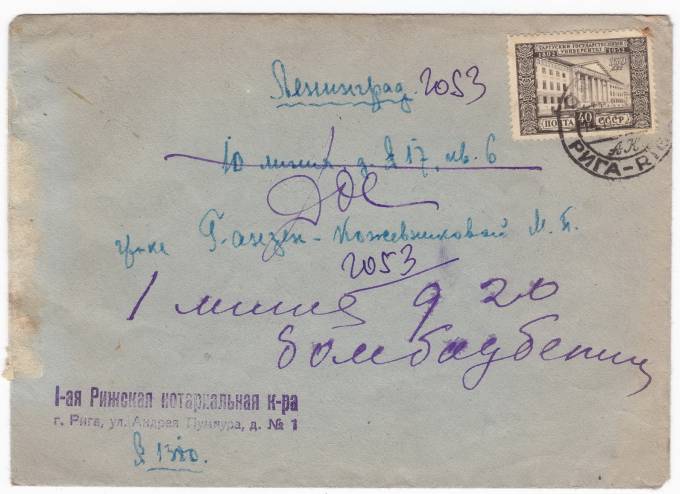 ТАРТУСКИЙ ГОСУДАРСТВЕННЫЙ
УНИВЕРСИТЕТ
1802 1952
ПОЧТА 40 СССР
РИГА-RIG
Ленинград. 2053
10 линия д. № 17, кв. 6
гр-ке Ганзен-Кожевниковой М. П.
2053
1 линия д 20
бомбоубежищ
I-ая Рижская нотариальная к-ра
г. Рига, ул. Андрея Пумпура, д. № 1
№ 1380.